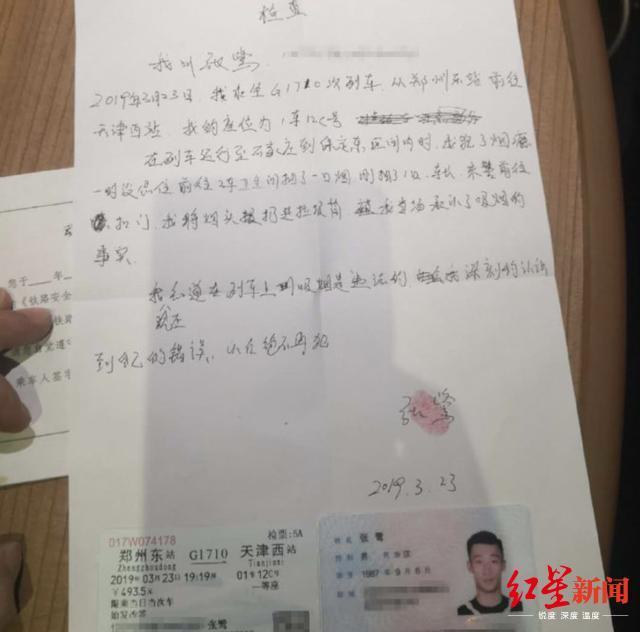 检查
我叫张鹭,
2019年3月23日,我乘坐G1710次列车,从郑州东站前往
天津西站,我的座位为1车12C号
在列车运行至石家庄到保定东区间内时,我犯了烟瘾
一时没忍住前往2车卫生间抽了一口烟,刚抽了1口,车长、乘警前往
扣门,我将烟头扔进垃圾筒 我当场承认了吸烟的
事实.
我知道在列车上吸烟是违法的, 深刻的认识
到自己的错误,以后绝不再犯
张鹭
2019.3.23
您于____年
《铁路安全
乘车人签字
017W074178
检票:5A
郑州东站 G1710 天津西站
Zhengzhoudong Tianjinxi
2019年03月23日19:19开 01车12C号
¥493.5元 一等座
限乘当日当次车
始发改签
张鹭
姓名 张鹭
性别 男 民族 汉
出生 1987年
红星新闻
锐度 深度 温度